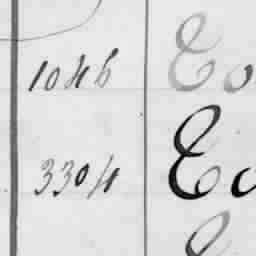 1046 Eo
3304 Eo